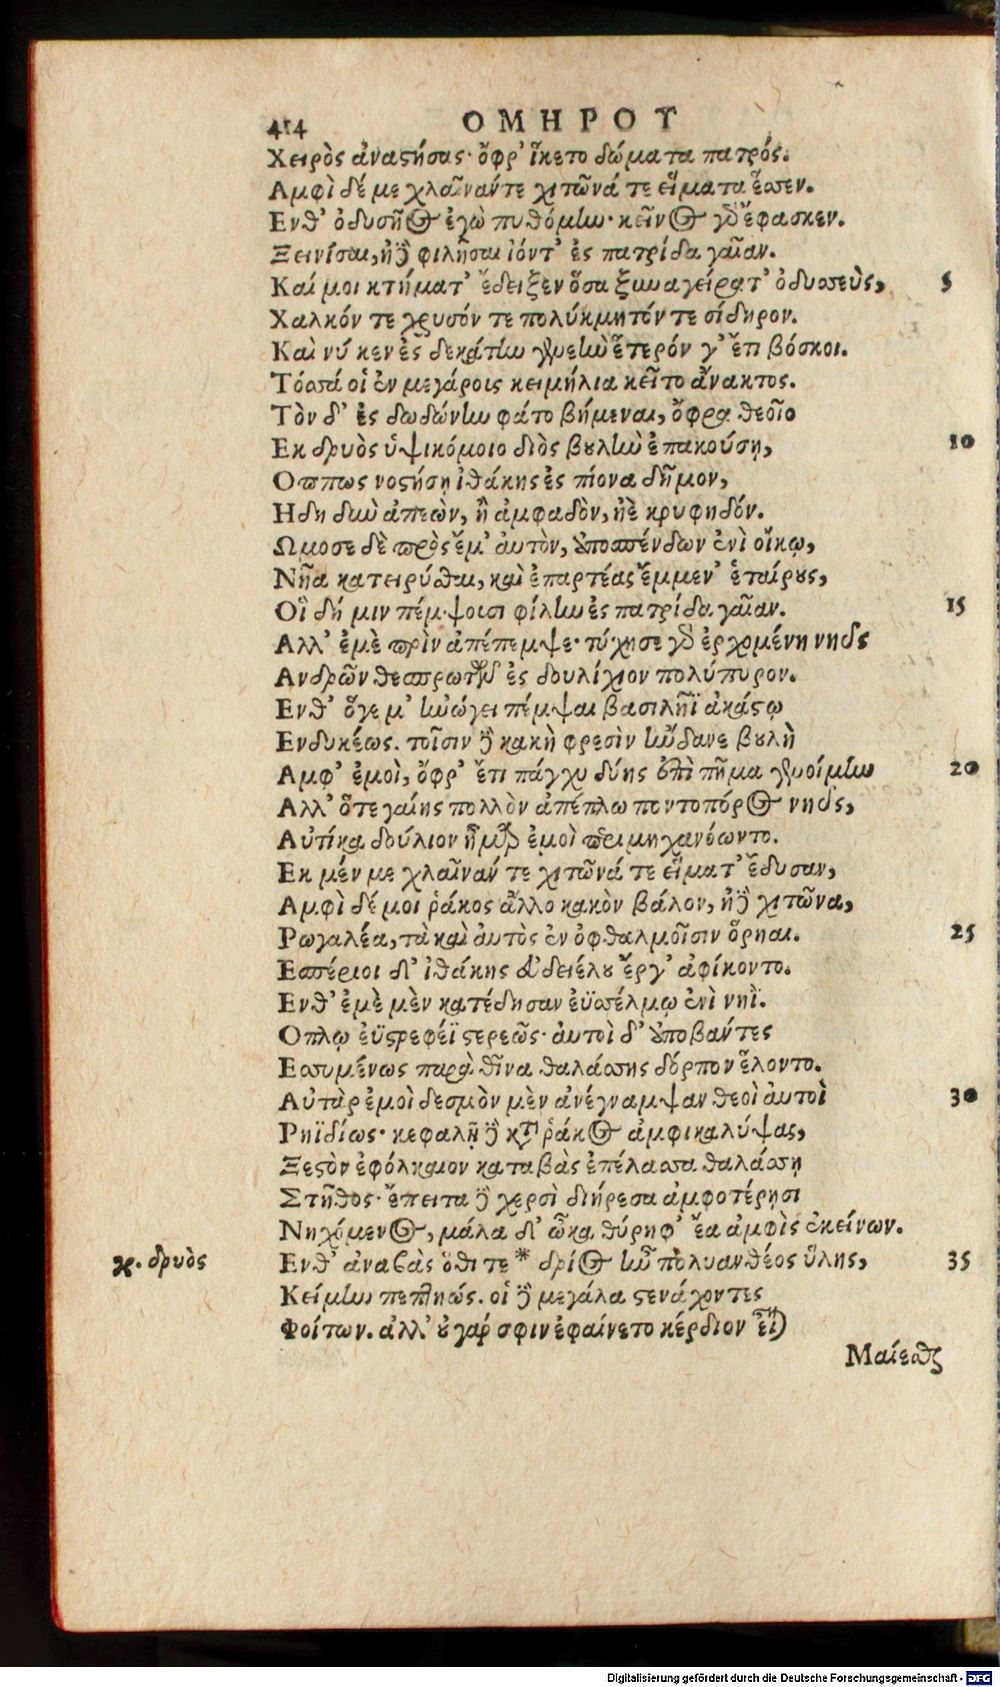 414 ΟΜΗΡΟΥ
Χειρὸς ἀναστήσας· ὄφρ' ἵκετο δώματα πατρός.
Αμφὶ δέ με χλαῖνάν τε χιτῶνά τε εἵματα ἕσσεν.
Ενθ' ὀδυσῆος ἐγὼ πυθόμην· κεῖνος γὰρ ἔφασκεν.
Ξεινίσαι, ἠδὲ φιλῆσαι ἰόντ' ἐς πατρίδα γαῖαν.
Καί μοι κτήματ' ἔδειξεν ὅσα ξυναγείρατ' ὀδυσσεὺς, 5
Χαλκόν τε χρυσόν τε πολύκμητόν τε σίδηρον.
Καὶ νύ κεν ἐς δεκάτην γενεὴν ἕτερόν γ' ἔτι βόσκοι.
Τόσσά οἱ ἐν μεγάροις κειμήλια κεῖτο ἄνακτος.
Τὸν δ' ἐς δωδώνην φάτο βήμεναι, ὄφρα θεοῖο
Εκ δρυὸς ὑψικόμοιο διὸς βουλὴν ἐπακούσῃ, 10
Οππως νοστήσῃ ἰθάκης ἐς πίονα δῆμον,
Ηδη δὴν ἀπεὼν, ἢ ἀμφαδὸν, ἠὲ κρυφηδόν.
Ωμοσε δὲ πρὸς ἔμ' ἀυτὸν, ἀποσπένδων ἐνὶ οἴκῳ,
Νῆα κατειρύσθαι, καὶ ἐπαρτέας ἔμμεν' ἑταίρους,
Οἳ δή μιν πέμψουσι φίλην ἐς πατρίδα γαῖαν. 15
Αλλ' ἐμὲ πρὶν ἀπέπεμψε· τύχησε γὰρ ἐρχομένη νηῦς
Ανδρῶν θεσπρωτῶν ἐς δουλίχιον πολύπυρον.
Ενθ' ὅγε μ' ἠνώγει πέμψαι βασιλῆϊ ἀκάστῳ
Ενδυκέως. τοῖσιν δὲ κακὴ φρεσὶν ἥνδανε βουλὴ
Αμφ' ἐμοὶ, ὄφρ' ἔτι πάγχυ δύης ἐπὶ πῆμα γενοίμην 20
Αλλ' ὅτε γαίης πολλὸν ἀπέπλω ποντοπόρος νηῦς,
Αὐτίκα δούλιον ἦμαρ ἐμοὶ περιμηχανόωντο.
Εκ μέν με χλαῖνάν τε χιτῶνά τε εἵματ' ἔδυσαν,
Αμφὶ δέ μοι ῥάκος ἄλλο κακὸν βάλον, ἠδὲ χιτῶνα,
Ρωγαλέα, τὰ καὶ ἀυτὸς ἐν ὀφθαλμοῖσιν ὅρηαι. 25
Εσπέριοι δ' ἰθάκης εὐδειέλου ἔργ' ἀφίκοντο.
Ενθ' ἐμὲ μὲν κατέδησαν ἐϋσσέλμῳ ἐνὶ νηΐ.
Οπλῳ ἐϋστρεφέϊ στερεῶς· ἀυτοὶ δ' ἀποβάντες
Εσσυμένως παρὰ θῖνα θαλάσσης δόρπον ἕλοντο.
Αὐτὰρ ἐμοὶ δεσμὸν μὲν ἀνέγναμψαν θεοὶ ἀυτοὶ 30
Ρηϊδίως· κεφαλῇ δὲ κατὰ ῥάκος ἀμφικαλύψας,
Ξεστὸν ἐφόλκαιον καταβὰς ἐπέλασσα θαλάσσῃ
Στῆθος· ἔπειτα δὲ χερσὶ διήρεσα ἀμφοτέρῃσι
Νηχόμενος, μάλα δ' ὦκα θύρηφ' ἔα ἀμφὶς ἐκείνων.
ϰ. δρυὸς Ενθ' ἀναβὰς ὅθι τε * δρίος ἦν πολυανθέος ὕλης, 35
Κείμην πεπτηώς. οἱ δὲ μεγάλα στενάχοντες
Φοίτων. ἀλλ' οὐ γάρ σφιν ἐφαίνετο κέρδιον εἶναι
Μαίεσθς
Digitalisierung gefördert durch die Deutsche Forschungsgemeinschaft - DFG